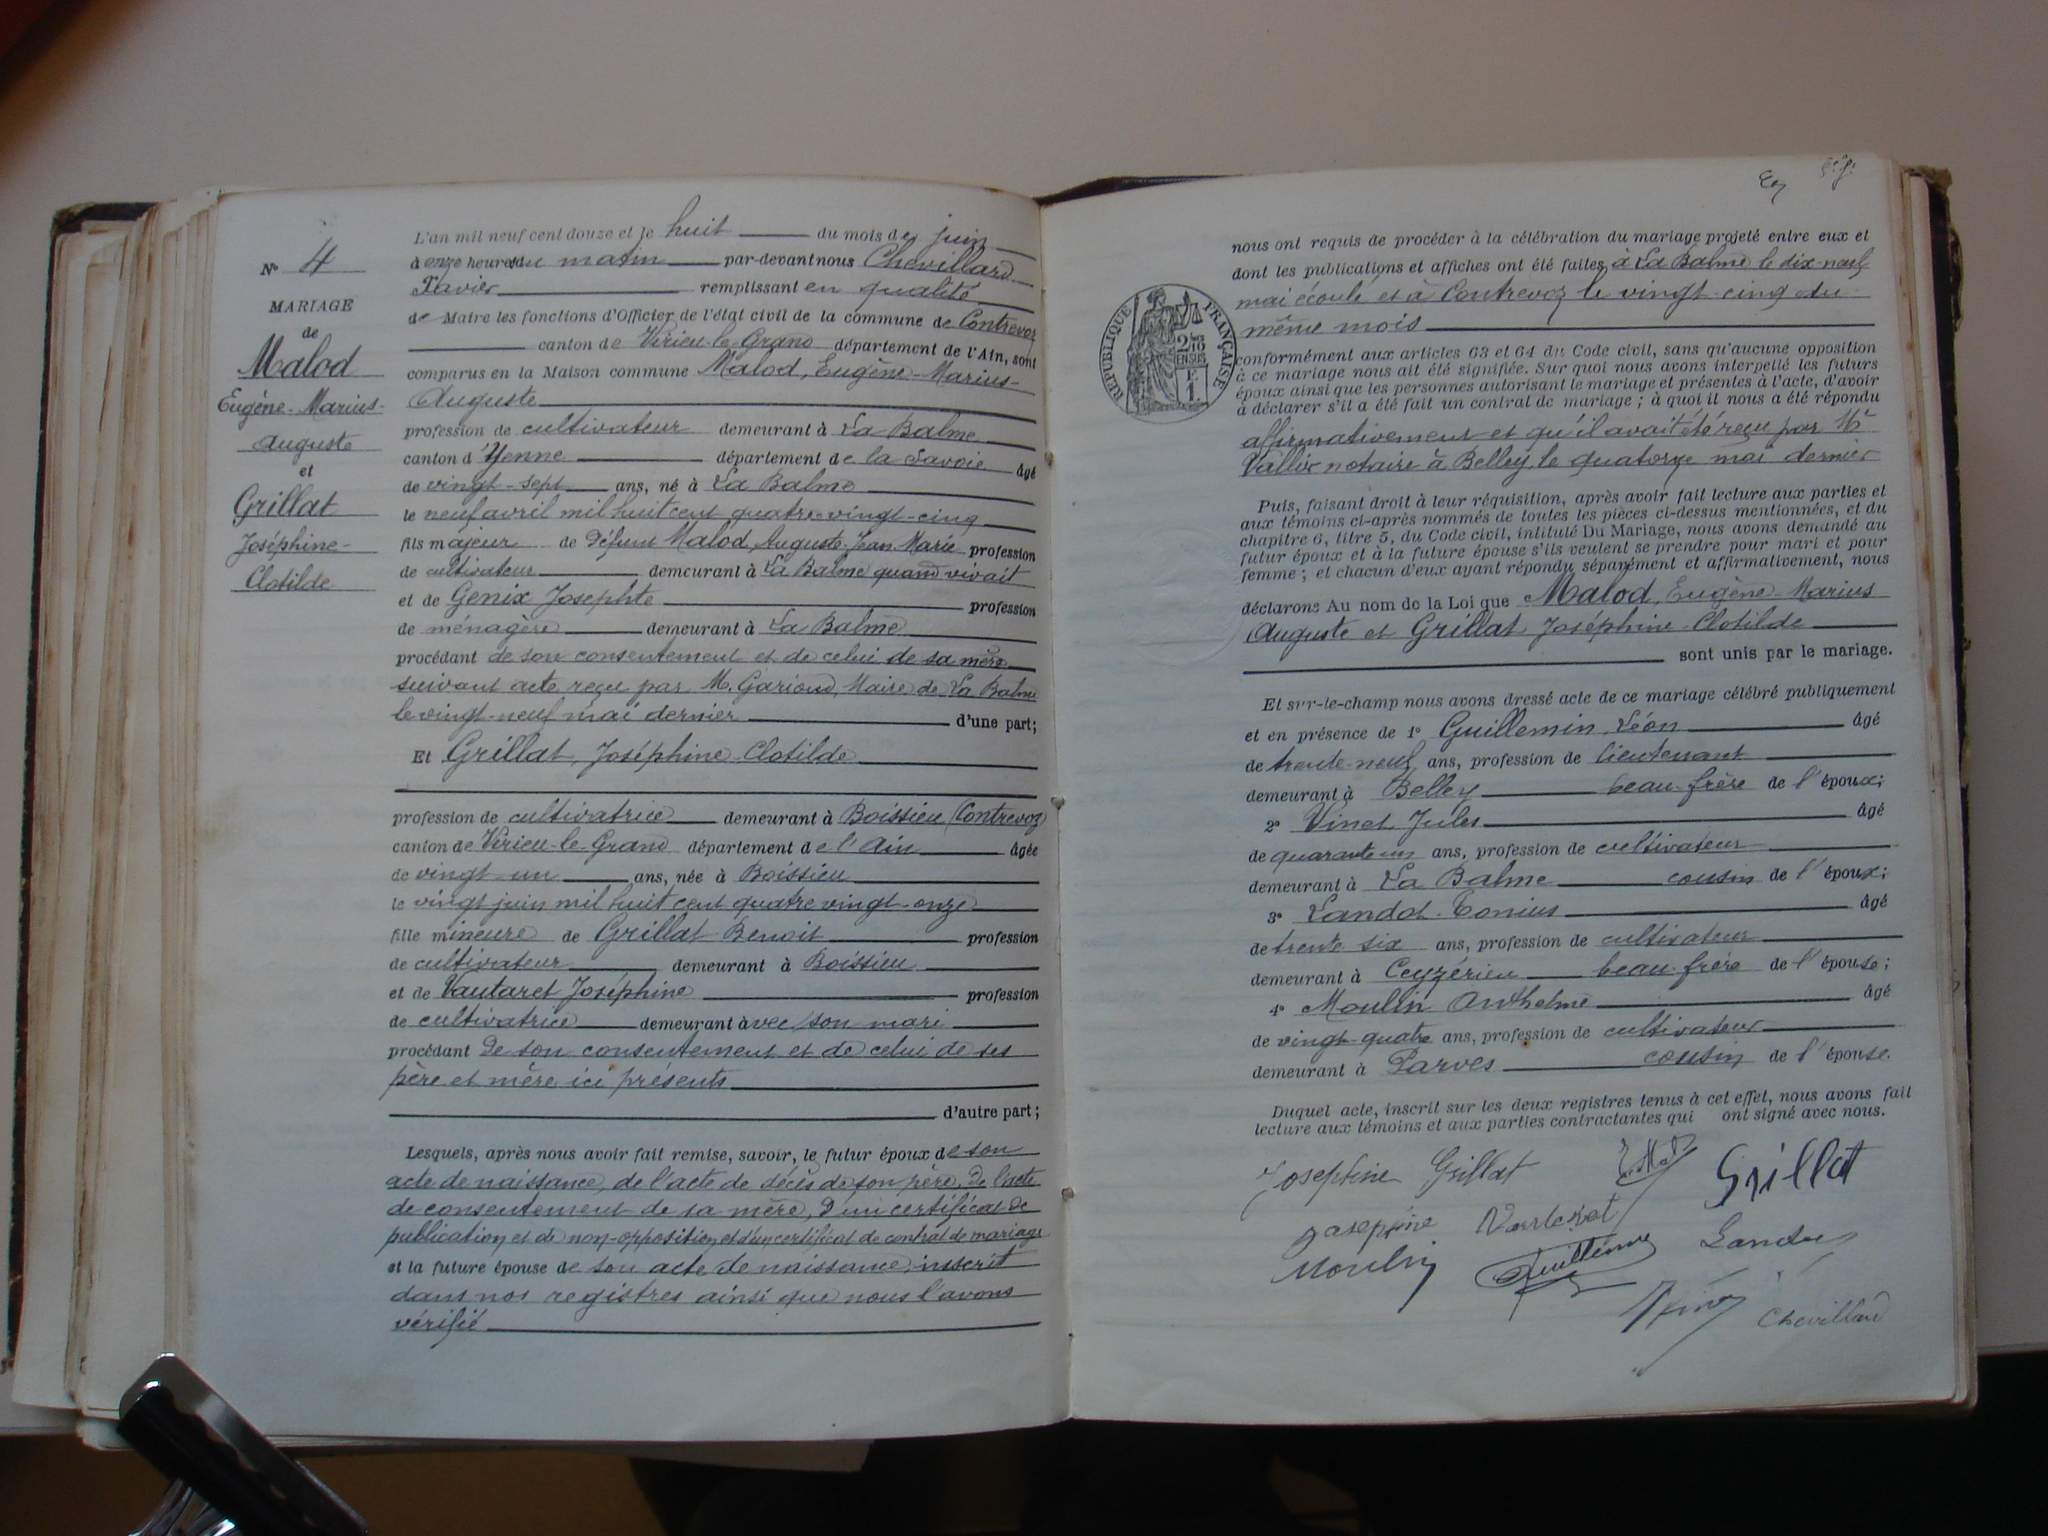 N° 4
MARIAGE
de
Malod
Eugène-Marius-
Auguste
et
Grillat
Joséphine-
Clotilde
L'an mil neuf cent douze et le huit du mois de juin
à onze heures du matin par-devant nous Chevillard
Xavier remplissant en qualité
de Maire les fonctions d'Officier de l'état civil de la commune de Contrevoz
canton de Virieu-le-Grand département de l'Ain, sont
comparus en la Maison commune Malod, Eugène-Marius-
Auguste
profession de cultivateur demeurant à La Balme
canton d'Yenne département de la Savoie âgé
de vingt-sept ans, né à La Balme
le neuf avril mil huit cent quatre-vingt-cinq
fils majeur de défunt Malod, Auguste-Jean Marie profession
de cultivateur demeurant à La Balme quand vivait
et de Genix Josephte profession
de ménagère demeurant à La Balme
procédant de son consentement et de celui de sa mère
suivant acte reçu par M. Gariond, Maire de La Balme
le vingt-neuf mai dernier d'une part;
Et Grillat, Joséphine-Clotilde
profession de cultivatrice demeurant à Boissieu (Contrevoz)
canton de Virieu-le-Grand département de l'Ain âgée
de vingt-un ans, née à Boissieu
le vingt juin mil huit cent quatre vingt-onze
fille mineure de Grillat Benoit profession
de cultivateur demeurant à Boissieu
et de Vautaret Joséphine profession
de cultivatrice demeurant avec son mari
procédant de son consentement et de celui de ses
père et mère ici présents
d'autre part;
Lesquels, après nous avoir fait remise, savoir, le futur époux de son
acte de naissance, de l'acte de décès de son père, de l'acte
de consentement de sa mère, d'un certificat de
publication et de non-opposition et d'un certificat de contrat de mariage
et la future épouse de son acte de naissance, inscrit
dans nos registres ainsi que nous l'avons
vérifié
nous ont requis de procéder à la célébration du mariage projeté entre eux et
dont les publications et affiches ont été faites, à La Balme le dix-neuf
mai écoulé et à Contrevoz le vingt-cinq du
même mois
RÉPUBLIQUE FRANÇAISE
conformément aux articles 63 et 64 du Code civil, sans qu'aucune opposition
à ce mariage nous ait été signifiée. Sur quoi nous avons interpellé les futurs
époux ainsi que les personnes autorisant le mariage et présentes à l'acte, d'avoir
à déclarer s'il a été fait un contrat de mariage; à quoi il nous a été répondu
affirmativement et qu'il avait été reçu par Me
Vallin notaire à Belley, le quatorze mai dernier
Puis, faisant droit à leur réquisition, après avoir fait lecture aux parties et
aux témoins ci-après nommés de toutes les pièces ci-dessus mentionnées, et du
chapitre 6, titre 5, du Code civil, intitulé Du Mariage, nous avons demandé au
futur époux et à la future épouse s'ils veulent se prendre pour mari et pour
femme; et chacun d'eux ayant répondu séparément et affirmativement, nous
déclarons Au nom de la Loi que Malod, Eugène-Marius
Auguste et Grillat Joséphine-Clotilde
sont unis par le mariage.
Et sur-le-champ nous avons dressé acte de ce mariage célébré publiquement
et en présence de 1° Guillemin, Léon âgé
de trente-neuf ans, profession de lieutenant
demeurant à Belley beau-frère de l'époux;
2° Vinet Jules âgé
de quarante un ans, profession de cultivateur
demeurant à La Balme cousin de l'époux;
3° Landot Tonius âgé
de trente six ans, profession de cultivateur
demeurant à Ceyzérieu beau-frère de l'épouse;
4° Moulin Anthelme âgé
de vingt-quatre ans, profession de cultivateur
demeurant à Parves cousin de l'épouse.
Duquel acte, inscrit sur les deux registres tenus à cet effet, nous avons fait
lecture aux témoins et aux parties contractantes qui ont signé avec nous.
Josephine Grillat Grillat
Josephine Vautaret
Moulin Guillemin Landot
Chevillard